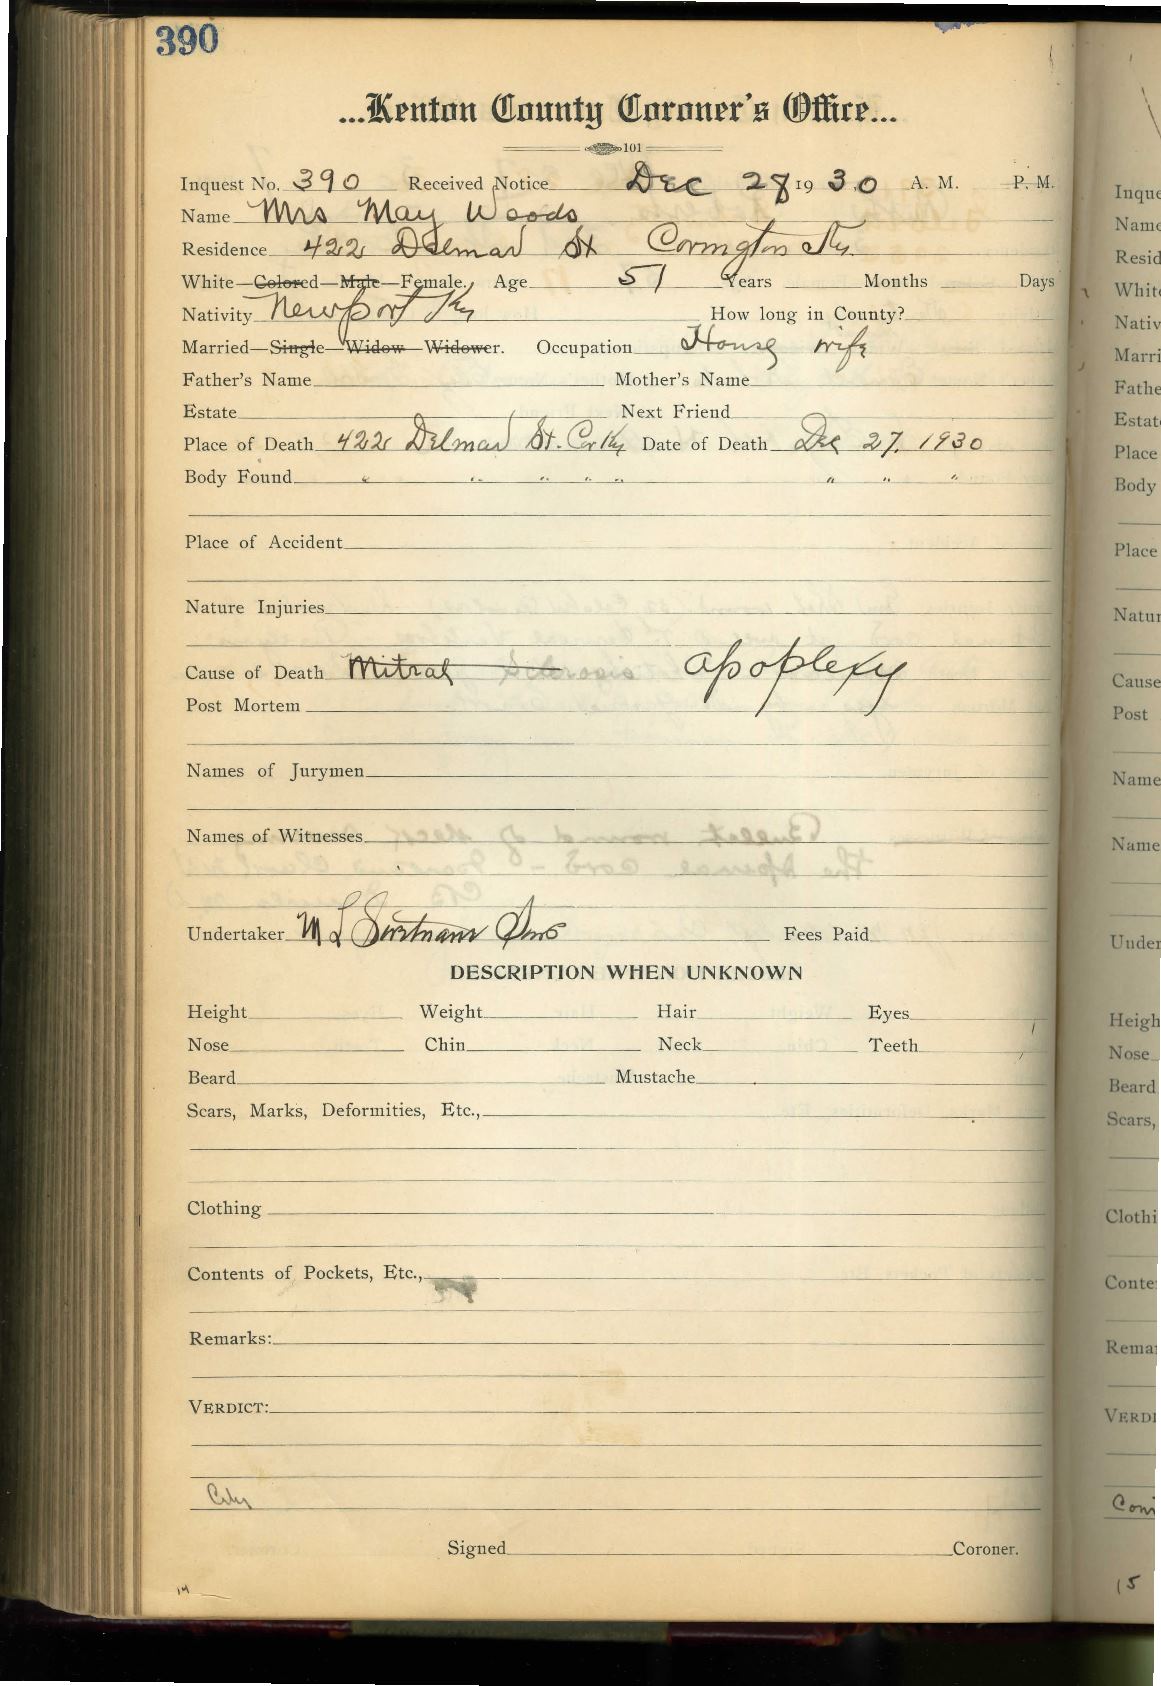 390
...Kenton County Coroner's Office...
101
Inquest No. 390 Received Notice Dec 28 1930 A. M. P. M.
Name Mrs May Woods
Residence 422 Delmar St Covington Ky.
White—Colored—Male—Female. Age 51 Years Months Days
Nativity Newport Ky How long in County?
Married—Single—Widow—Widower. Occupation House wife
Father's Name Mother's Name
Estate Next Friend
Place of Death 422 Delmar St. Cov Ky Date of Death Dec 27, 1930
Body Found " " " " " " " "
Place of Accident
Nature Injuries
Cause of Death Mitral Sclerosis apoplexy
Post Mortem
Names of Jurymen
Names of Witnesses
Undertaker M L Swetnam Sons Fees Paid
DESCRIPTION WHEN UNKNOWN
Height Weight Hair Eyes
Nose Chin Neck Teeth
Beard Mustache
Scars, Marks, Deformities, Etc.,
Clothing
Contents of Pockets, Etc.,
Remarks:
VERDICT:
City
Signed Coroner.
14
Inque
Name
Resid
White
Nativ
Marri
Fathe
Estat
Place
Body
Place
Natur
Cause
Post
Name
Name
Under
Heigh
Nose
Beard
Scars,
Clothi
Conte
Remar
VERDI
Covi
15